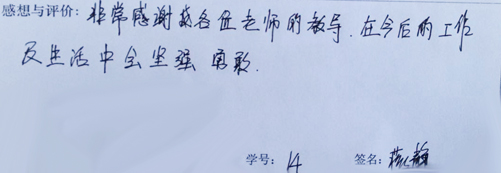 感想与评价：非常感谢各位老师的教导.在今后的工作
及生活中会坚强勇敢.
学号：14 签名：